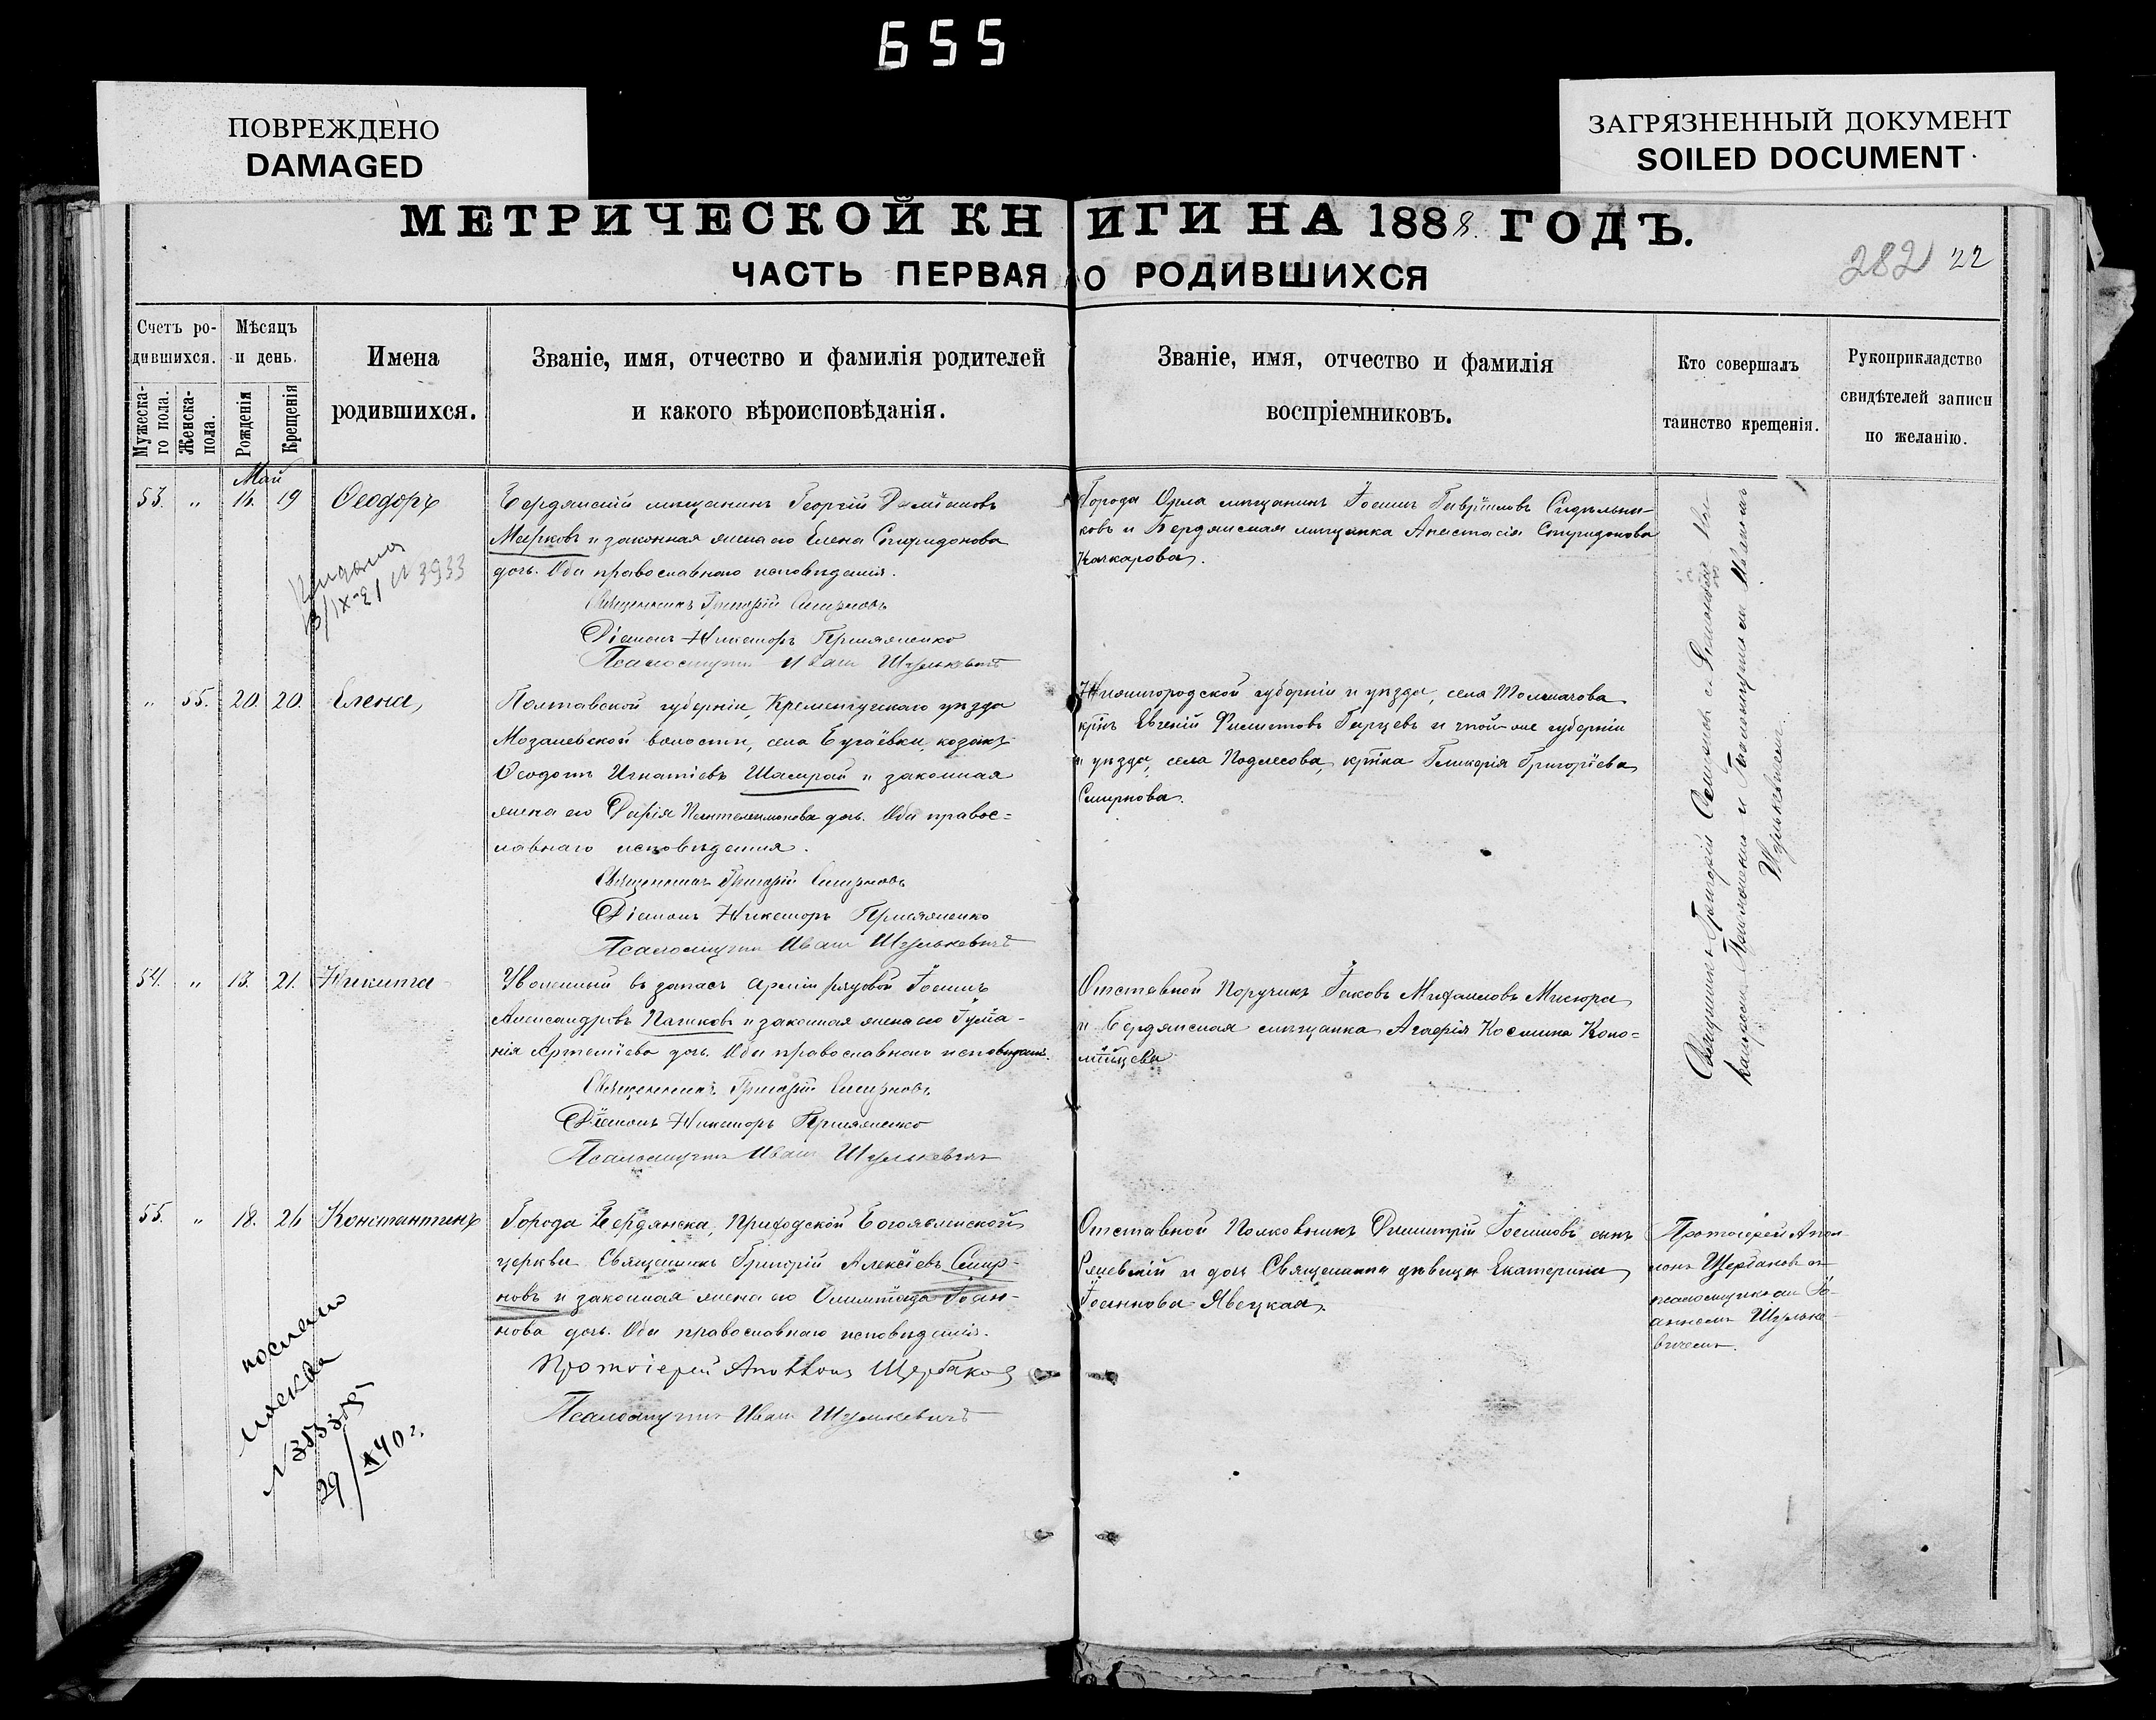 655
ПОВРЕЖДЕНО
DAMAGED
ЗАГРЯЗНЕННЫЙ ДОКУМЕНТ
SOILED DOCUMENT
МЕТРИЧЕСКОЙ КНИГИ НА 1888 ГОДЪ.
ЧАСТЬ ПЕРВАЯ О РОДИВШИХСЯ
282 22
Счетъ ро-
дившихся.
Мужеска-
го пола.
Женска-
пола.
Мѣсяцъ
и день.
Рожденія
Крещенія
Имена
родившихся.
Званіе, имя, отчество и фамилія родителей
и какого вѣроисповѣданія.
Званіе, имя, отчество и фамилія
воспріемниковъ.
Кто совершалъ
таинство крещенія.
Рукоприкладство
свидѣтелей записи
по желанію.
Май
53. " 14. 19 Ѳеодоръ
Бердянскій мѣщанинъ Георгій Даміановъ
Марковъ и законная жена его Елена Спиридонова
дочь. Оба православнаго исповѣданія.
Священникъ Григорій Смирновъ
Діаконъ Никаноръ
Псаломщикъ Иванъ Шулькевичъ
Города Орла мѣщанинъ Іосифъ Гавріиловъ Сидѣльни-
ковъ и Бердянская мѣщанка Анастасія Спиридонова
Качкарова.
№ 3933
" 55. 20. 20. Елена
Полтавской губерніи, Кременчугскаго уѣзда
волости, села Бугаёвки, козакъ
Ѳеодотъ Игнатіевъ Шамрай и законная
жена его Дарія Пантелеимонова дочь. Оба правос=
лавнаго исповѣданія.
Священникъ Григорій Смирновъ
Діаконъ Никаноръ
Псаломщикъ Иванъ Шулькевичъ
Нижнегородской губерніи и уѣзда, села Толмачова
кр̃нъ Евгеній Филиповъ Гарцевъ и той-же губерніи
и уѣзда, села Подлесова, кр̃нка Гликерія Григоріева
Смирнова.
54. " 13. 21. Никита
Уволенный въ запасъ арміи рядовой Іосифъ
Александровъ Пашковъ и законная жена его Іуліа-
нія Артеміева дочь. Оба православнаго исповѣданія.
Священникъ Григорій Смирновъ
Діаконъ Никаноръ
Псаломщикъ Иванъ Шулькевичъ
Отставной Поручикъ Іаковъ Михаиловъ Мисюра
и Бердянская мѣщанка Агафія Космина Коло=
мійцева
Священникъ Григорій
Шулькевичемъ
55. " 18. 26 Константинъ
Города Бердянска, Приходской Богоявленской
церкви Священникъ Григорій Алексіевъ Смир-
новъ и законная жена его Олимпіада Іоан-
нова дочь. Оба православнаго исповѣданія.
Протоіерей Аполлонъ Щербаковъ
Псаломщикъ Иванъ Шулькевичъ
Отставной Полковникъ Димитрій Іосифовъ сынъ
и дочь Священника дѣвица Екатерина
Іоаннова Явецкая.
Протоіерей Апол-
лонъ Щербаковъ съ
псаломщикомъ Іо-
анномъ Шульке-
вичемъ.
послано